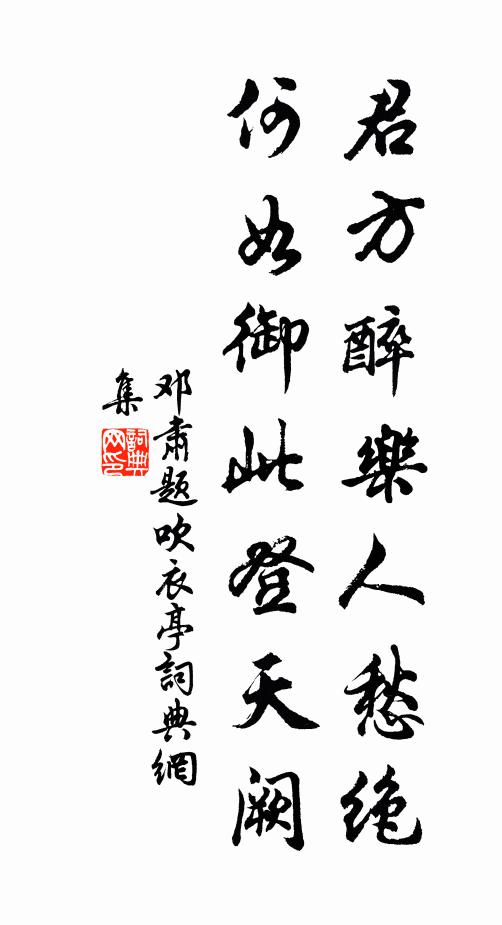 君方醉樂人愁絶
何如御此登天闕
邓肅题吹衣亭詞典網
集
詞典网印